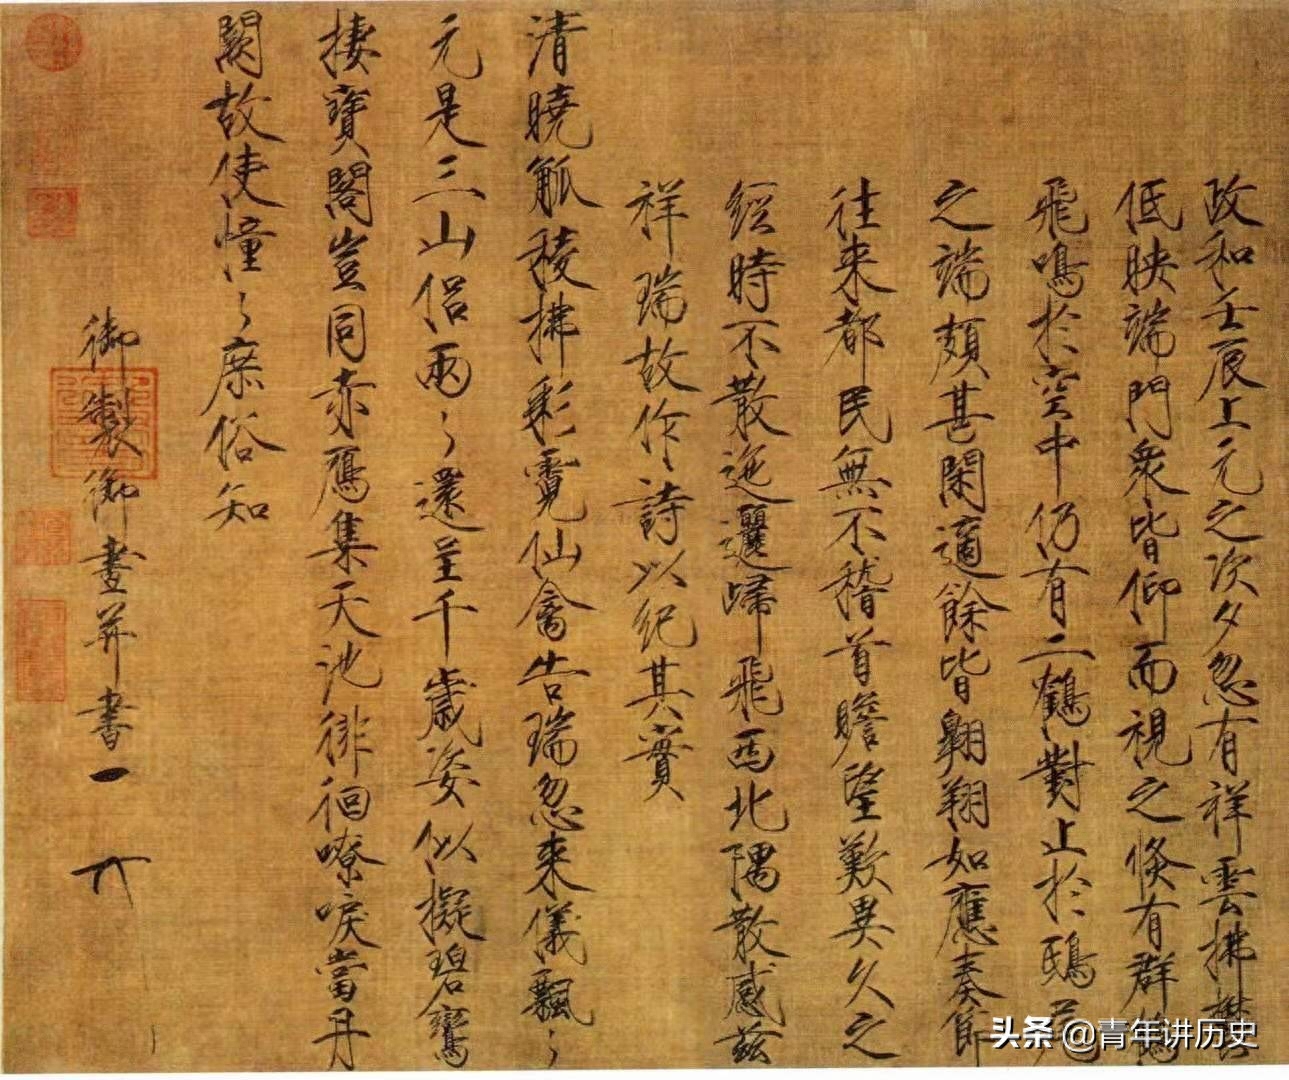 政和壬辰上元之次夕忽有祥雲拂鬱
低映端門衆皆仰而視之倐有群鶴
飛鳴於空中仍有二鶴對止於鴟尾
之端頗甚閑適餘皆翱翔如應奏節
往来都民無不稽首瞻望歎異久之
經時不散迤邐歸飛西北隅散感茲
祥瑞故作詩以紀其實
清曉觚稜拂彩霓仙禽告瑞忽来儀飄々
元是三山侶兩々還呈千歲姿似擬碧鸞
棲寶閣豈同赤鴈集天池徘徊嘹唳當丹
闕故使憧々庶俗知
御製御畫并書
头条 @青年讲历史